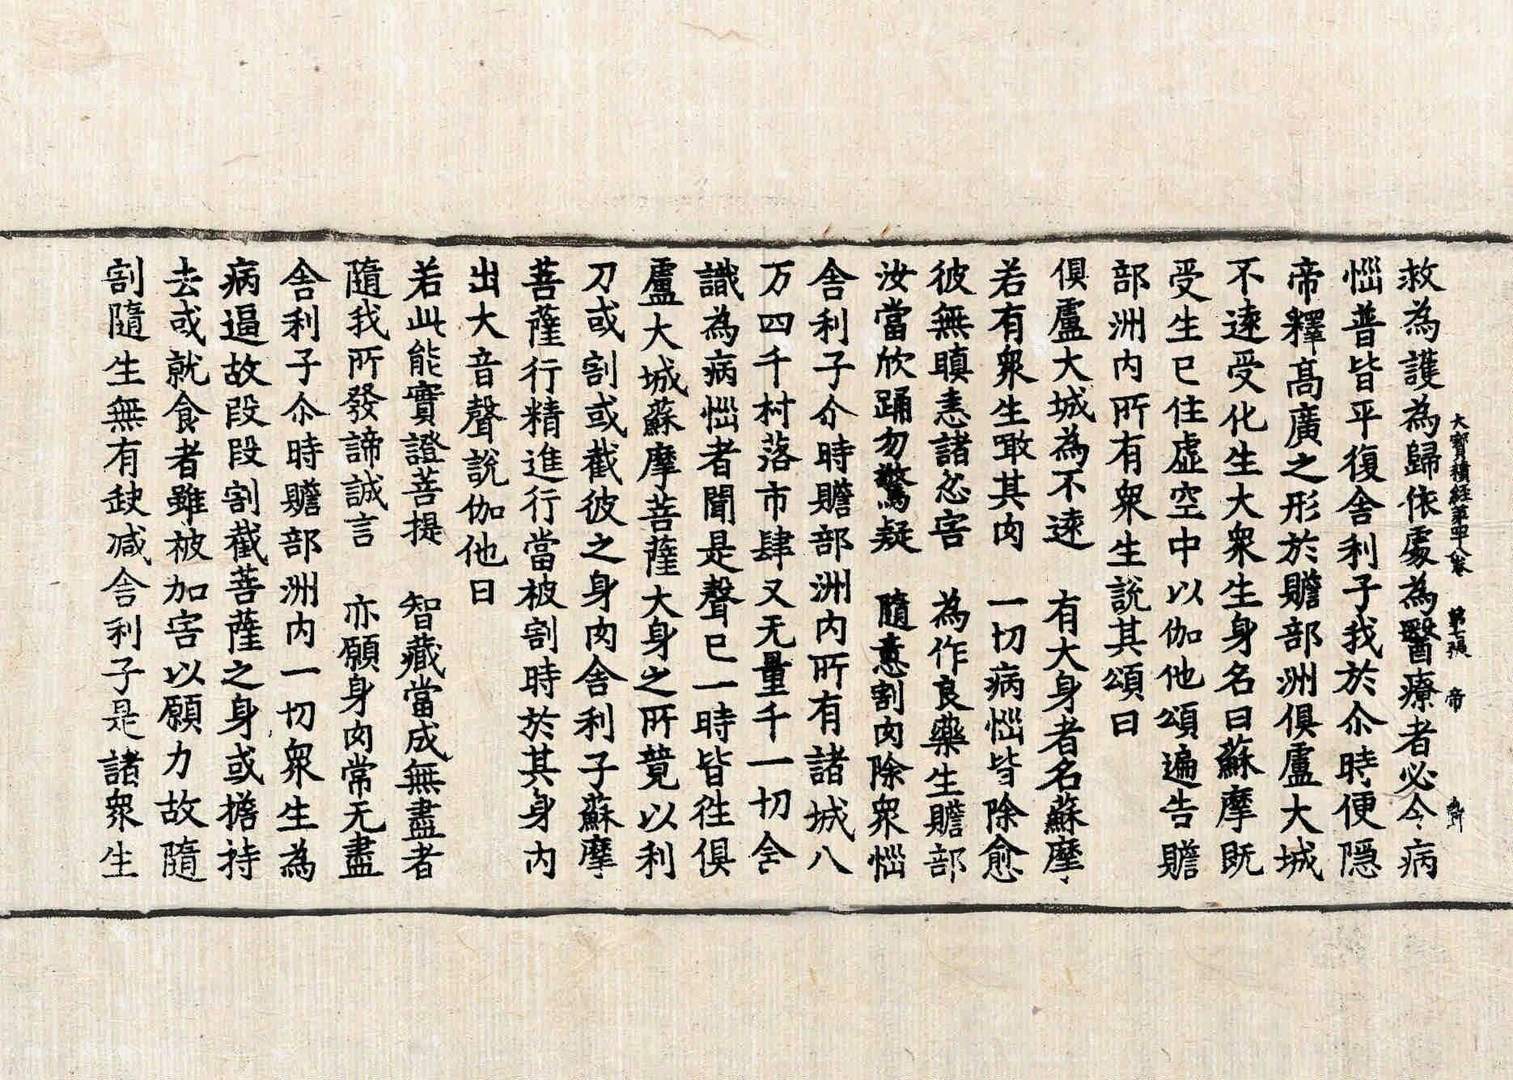 大寶積經第四十八卷　第七張　帝
救為護為歸依處為醫療者必令病
惱普皆平復舍利子我於尒時便隱
帝釋髙廣之形於贍部洲俱盧大城
不遠受化生大衆生身名曰蘇摩既
受生已住虛空中以伽他頌遍告贍
部洲内所有衆生說其頌曰
俱盧大城為不遠　有大身者名蘇摩
若有衆生噉其肉　一切病惱皆除愈
彼無瞋恚諸忿害　為作良藥生贍部
汝當欣踊勿驚疑　隨意割肉除衆惱
舍利子尒時贍部洲内所有諸城八
万四千村落市肆又无量千一切含
識為病惱者聞是聲已一時皆徃俱
盧大城蘇摩菩薩大身之所競以利
刀或割或截彼之身肉舍利子蘇摩
菩薩行精進行當被割時於其身内
出大音聲說伽他曰
若此能實證菩提　智藏當成無盡者
隨我所發諦誠言　亦願身肉常无盡
舍利子尒時贍部洲内一切衆生為
病逼故段段割截菩薩之身或擔持
去或就食者雖被加害以願力故隨
割隨生無有缺减舍利子是諸衆生